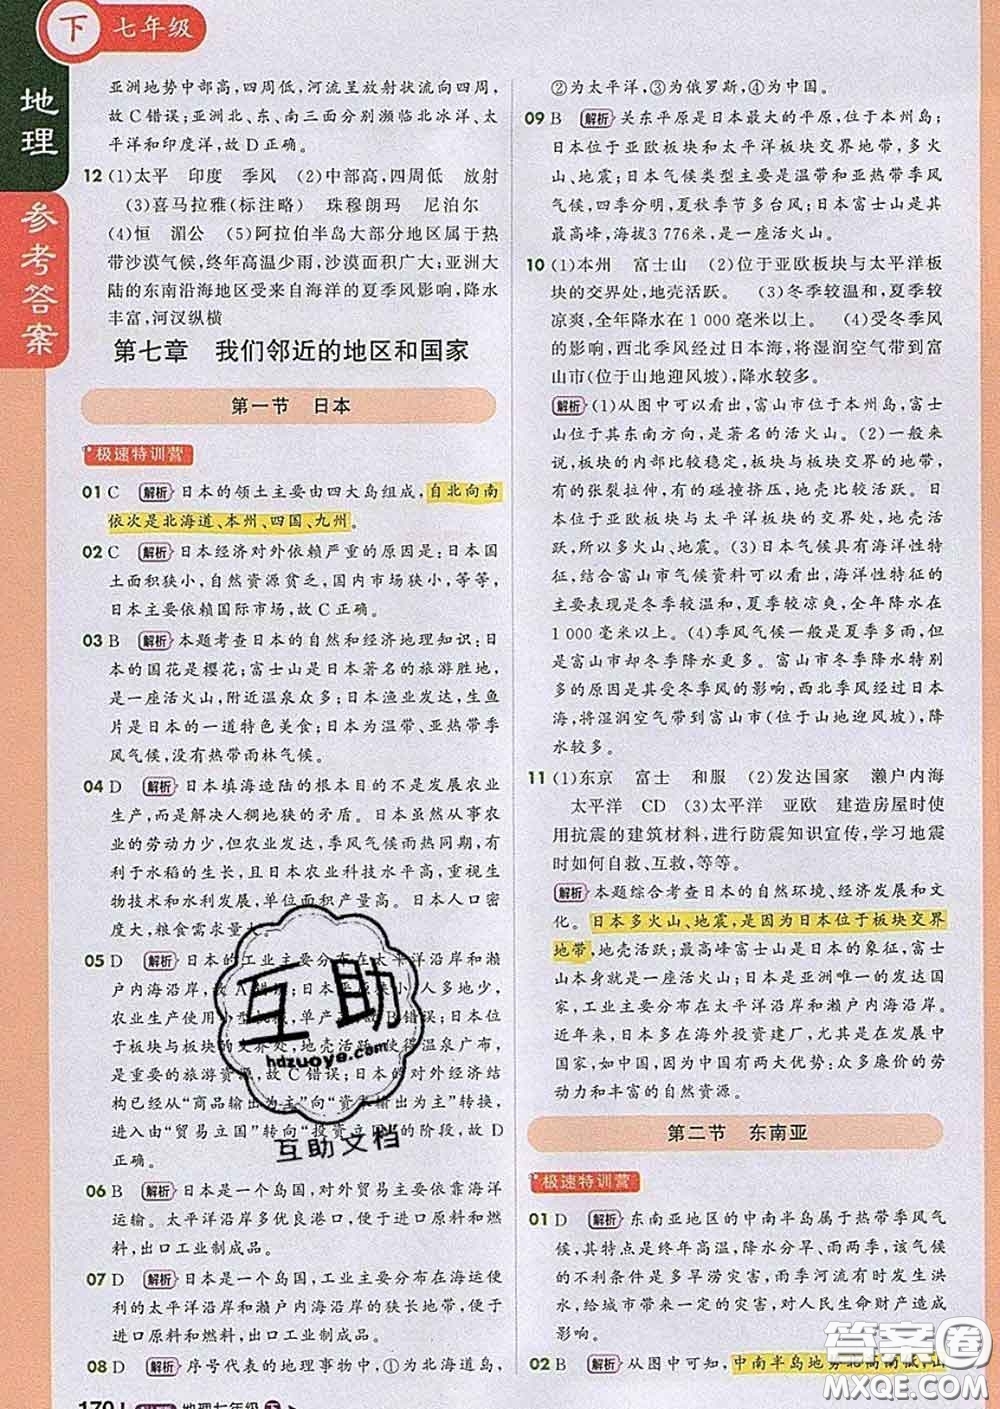 下 七年级
地理
参考答案
亚洲地势中部高,四周低,河流呈放射状流向四周,
故C错误;亚洲北、东、南三面分别濒临北冰洋、太
平洋和印度洋,故D正确。
12 (1)太平 印度 季风 (2)中部高,四周低 放射
(3)喜马拉雅(标注略) 珠穆朗玛 尼泊尔
(4)恒 湄公 (5)阿拉伯半岛大部分地区属于热
带沙漠气候,终年高温少雨,沙漠面积广大;亚洲大
陆的东南沿海地区受来自海洋的夏季风影响,降水
丰富,河汊纵横
第七章 我们邻近的地区和国家
第一节 日本
极速特训营
01 C 解析 日本的领土主要由四大岛组成,自北向南
依次是北海道、本州、四国、九州。
02 C 解析 日本经济对外依赖严重的原因是:日本国
土面积狭小,自然资源贫乏,国内市场狭小,等等,
日本主要依赖国际市场,故C正确。
03 B 解析 本题考查日本的自然和经济地理知识:日
本的国花是樱花;富士山是日本著名的旅游胜地,
是一座活火山,附近温泉众多;日本渔业发达,生鱼
片是日本的一道特色美食;日本为温带、亚热带季
风气候,没有热带雨林气候。
04 D 解析 日本填海造陆的根本目的不是发展农业
生产,而是解决人稠地狭的矛盾。日本经济发达,
农业劳动力少,但农业发达,季风气候雨热同期,有
利于水稻的生长,且日本农业科技水平高,重视水
利和水土资源开发,单位面积产量高。日本人口密
度大,粮食需求量大。
05 D 解析 日本的工业主要分布在太平洋沿岸和濑
户内海沿岸,故A错误;日本人多地少,
农业生产使用小型机械,单产
板块与板块的交界处,地壳活跃,使得温泉广布,
是重要的旅游资源,故C错误;日本的对外经济结
构已经从“商品输出为主”向“资本输出为主”转换,
进入由“贸易立国”转向“投资立国”的阶段,故D
正确。
06 B 解析 日本是一个岛国,对外贸易主要依靠海洋
运输。太平洋沿岸多优良港口,便于进口原料和燃
料,出口工业制成品。
07 D 解析 日本是一个岛国,工业主要分布在海运便
利的太平洋沿岸和濑户内海沿岸的狭长地带,便于
进口原料和燃料,出口工业制成品。
08 D 解析 序号代表的地理事物中,①为北海道岛,
170 地理七年级 下
②为太平洋,③为俄罗斯,④为中国。
09 B 解析 关东平原是日本最大的平原,位于本州岛;
日本位于亚欧板块和太平洋板块交界地带,多火
山、地震;日本气候类型主要是温带和亚热带季风
气候,四季分明,夏秋季节多台风;日本富士山是其
最高峰,海拔3 776米,是一座活火山。
10 (1)本州 富士山 (2)位于亚欧板块与太平洋板
块的交界处,地壳活跃。 (3)冬季较温和,夏季较
凉爽,全年降水在1 000毫米以上。 (4)受冬季风
的影响,西北季风经过日本海,将湿润空气带到富
山市(位于山地迎风坡),降水较多。
解析 (1)从图中可以看出,富山市位于本州岛,富士
山位于其东南方向,是著名的活火山。(2)一般来
说,板块的内部比较稳定,板块与板块交界的地带,
有的张裂拉伸,有的碰撞挤压,地壳比较活跃。日
本位于亚欧板块与太平洋板块的交界处,地壳活
跃,所以多火山、地震。(3)日本气候具有海洋性特
征,结合富山市气候资料可以看出,海洋性特征的
冬季较温和,夏季较凉爽,全年降水在
1 000毫米以上。(4)季风气候夏季多雨,但
是富山市却冬季降水更多。富山市冬季降水特别
多的原因是其受冬季风的影响,西北季风经过日本
海,将湿润空气带到富山市(位于山地迎风坡),降
水较多。
11 (1)东京 富士 和服 (2)发达国家 濑户内海
太平洋 CD (3)太平洋 亚欧 建造房屋时使
用抗震的建筑材料,进行防震知识宣传,学习地震
时如何自救、互救,等等。
解析 本题综合考查日本的自然环境、经济发展和文
化。日本多火山、地震,是因为日本位于板块交界
地带,地壳活跃;最高峰富士山是日本的象征,富士
山本身就是一座活火山;日本是亚洲唯一的发达国
家,工业主要分布在太平洋沿岸和濑户内海沿岸。
近年来,日本多在海外投资建厂,尤其是在发展中
国家,如中国,因为中国有两大优势:众多廉价的劳
动力和丰富的自然资源。
第二节 东南亚
极速特训营
01 D 解析 东南亚地区的中南半岛属于热带季风气
候,其特点是终年高温,降水分旱、雨两季,该气候
的不利条件是多旱涝灾害,雨季河流有时发生洪
水,给城市带来一定的灾害,对人民生命财产造成
影响。
02 B 解析 从图中可知,中南半岛地势北高南低,山
互助
hdzuoye.com
互助文档
答案圈
MXQE.COM